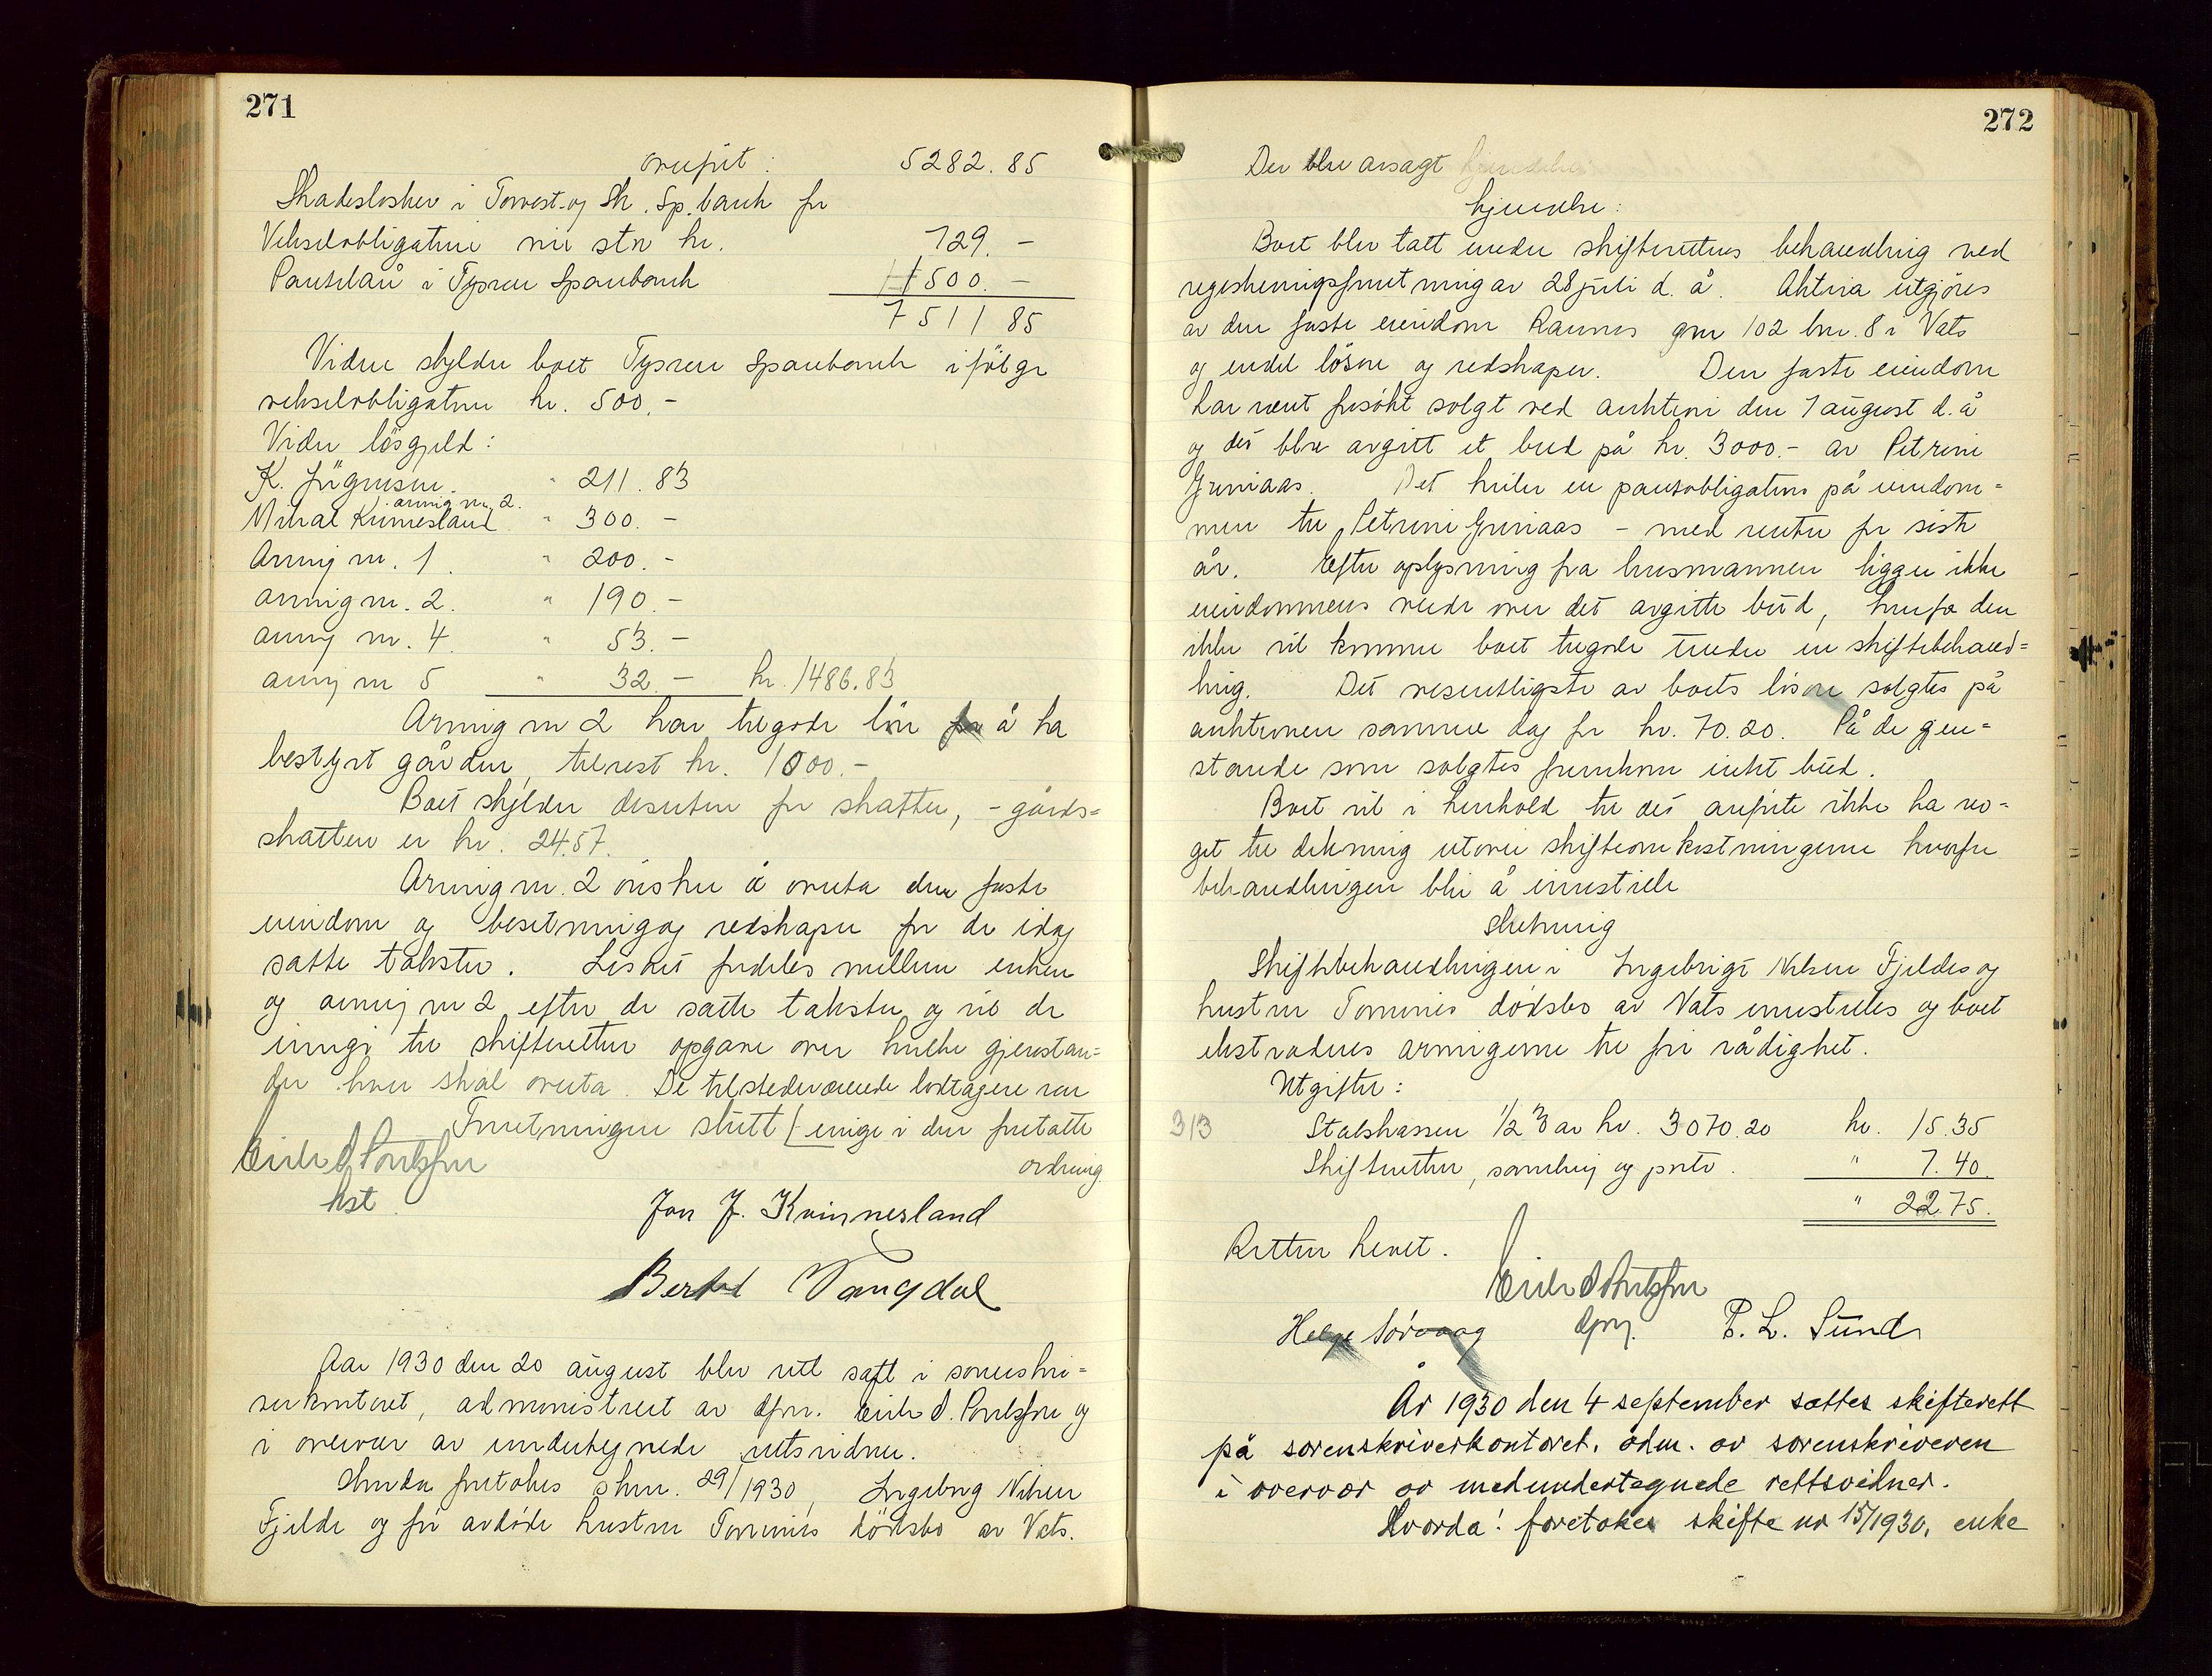 271
overført: 5282.85
Skadesløsbrev i Torvest. og Sk. Sp.bank for
Vekselobligation nu stor kr. 729.-
Pantelån i Tysvær Sparebank 1500.-
7511 85
Videre skylder boet Tysvær Sparebank ifølge
vekselobligation kr. 500.-
Videre løsgjeld:
K. Jörgensen. " 211.83
arving nr. 2.
Mikal Kvinnesland " 300.-
Arving nr. 1. " 200.-
arving nr. 2. " 190.-
arving nr. 4. " 53.-
arving nr 5 " 32.- kr. 1486.83
Arving nr 2 har tilgode lön for å ha
bestyrt gården, tilrest kr. 1000.-
Boet skylder desuten for skatter, - gårds-
skatten er kr. 24.57.
Arving nr. 2 önsker å overta den faste
eiendom og besetning og redskaper for de idag
satte takster. Løsöret fordeles mellem enken
og arving nr 2 efter de satte takster og vil de
inngi til skifteretten opgave over hvilke gjenstan-
der hver skal overta. De tilstedeværende lodtagere var
Forretningen slutt [- enige i den foretatte
ordning
Eirik d Pontoppn
kst.
Jon J. Kvinnesland
Bertel Vangdal
Aar 1930 den 20 august blev rett satt i sorenskri-
verkontoret, administrert av dfm. Eirik d. Pontoppn og
i overvær av undertegnede rettsvidner.
Hvorda foretokes skm. 29/1930, Ingebrigt Nilsen
Fjelde og før avdøde hustru Tomines dödsbo av Vats.
272
Der blev avsagt kjendelse
kjennelse:
Boet blev tatt under skifterettens behandling ved
registreringsforretning av 28 juli d. å. Aktiva utgjöres
av den faste eiendom Raunes gnr 102 bnr. 8 i Vats
og endel lösöre og redskaper. Den faste eiendom
har vært forsøkt solgt ved auktion den 7 august d. å
og det blev avgitt et bud på kr. 3000.- av Petrine
Grinaas. Det hviler en panteobligation på eiendom-
men til Petrine Grinaas - med renter for siste
år. Efter oplysning fra lensmannen ligger ikke
eiendommens verdi over det avgitte bud, hvorfor den
ikke vil komme boet tilgode under en skiftebehand-
ling. Det vesentligste av boets lösöre solgtes på
auktionen samme dag for kr. 70.20. På de gjen-
stande som solgtes fremkom intet bud.
Boet vil i henhold til det anførte ikke ha no-
get til dekning utover skifteomkostningerne hvorfor
behandlingen blir å innstille
Slutning
Skiftebehandlingen i Ingebrigt Nilsen Fjeldes og
hustru Tomines dödsbo av Vats innstilles og boet
ekstraderes arvingerne til fri rådighet.
Utgifter:
313 Statskassen 1/2 % av kr. 3070.20 kr. 15.35
Skifteretten, samling og porto. " 7.40
" 22.75.
Retten hevet.
Eirik d Pontoppn
dfm.
Helge Sörvaag
P. L. Sund
År 1930 den 4 september sattes skifterett
på sorenskriverkontoret, adm. av sorenskriveren
i overvær av medundertegnede rettsvidner.
Hvorda! foretokes skifte nr 15/1930, enke